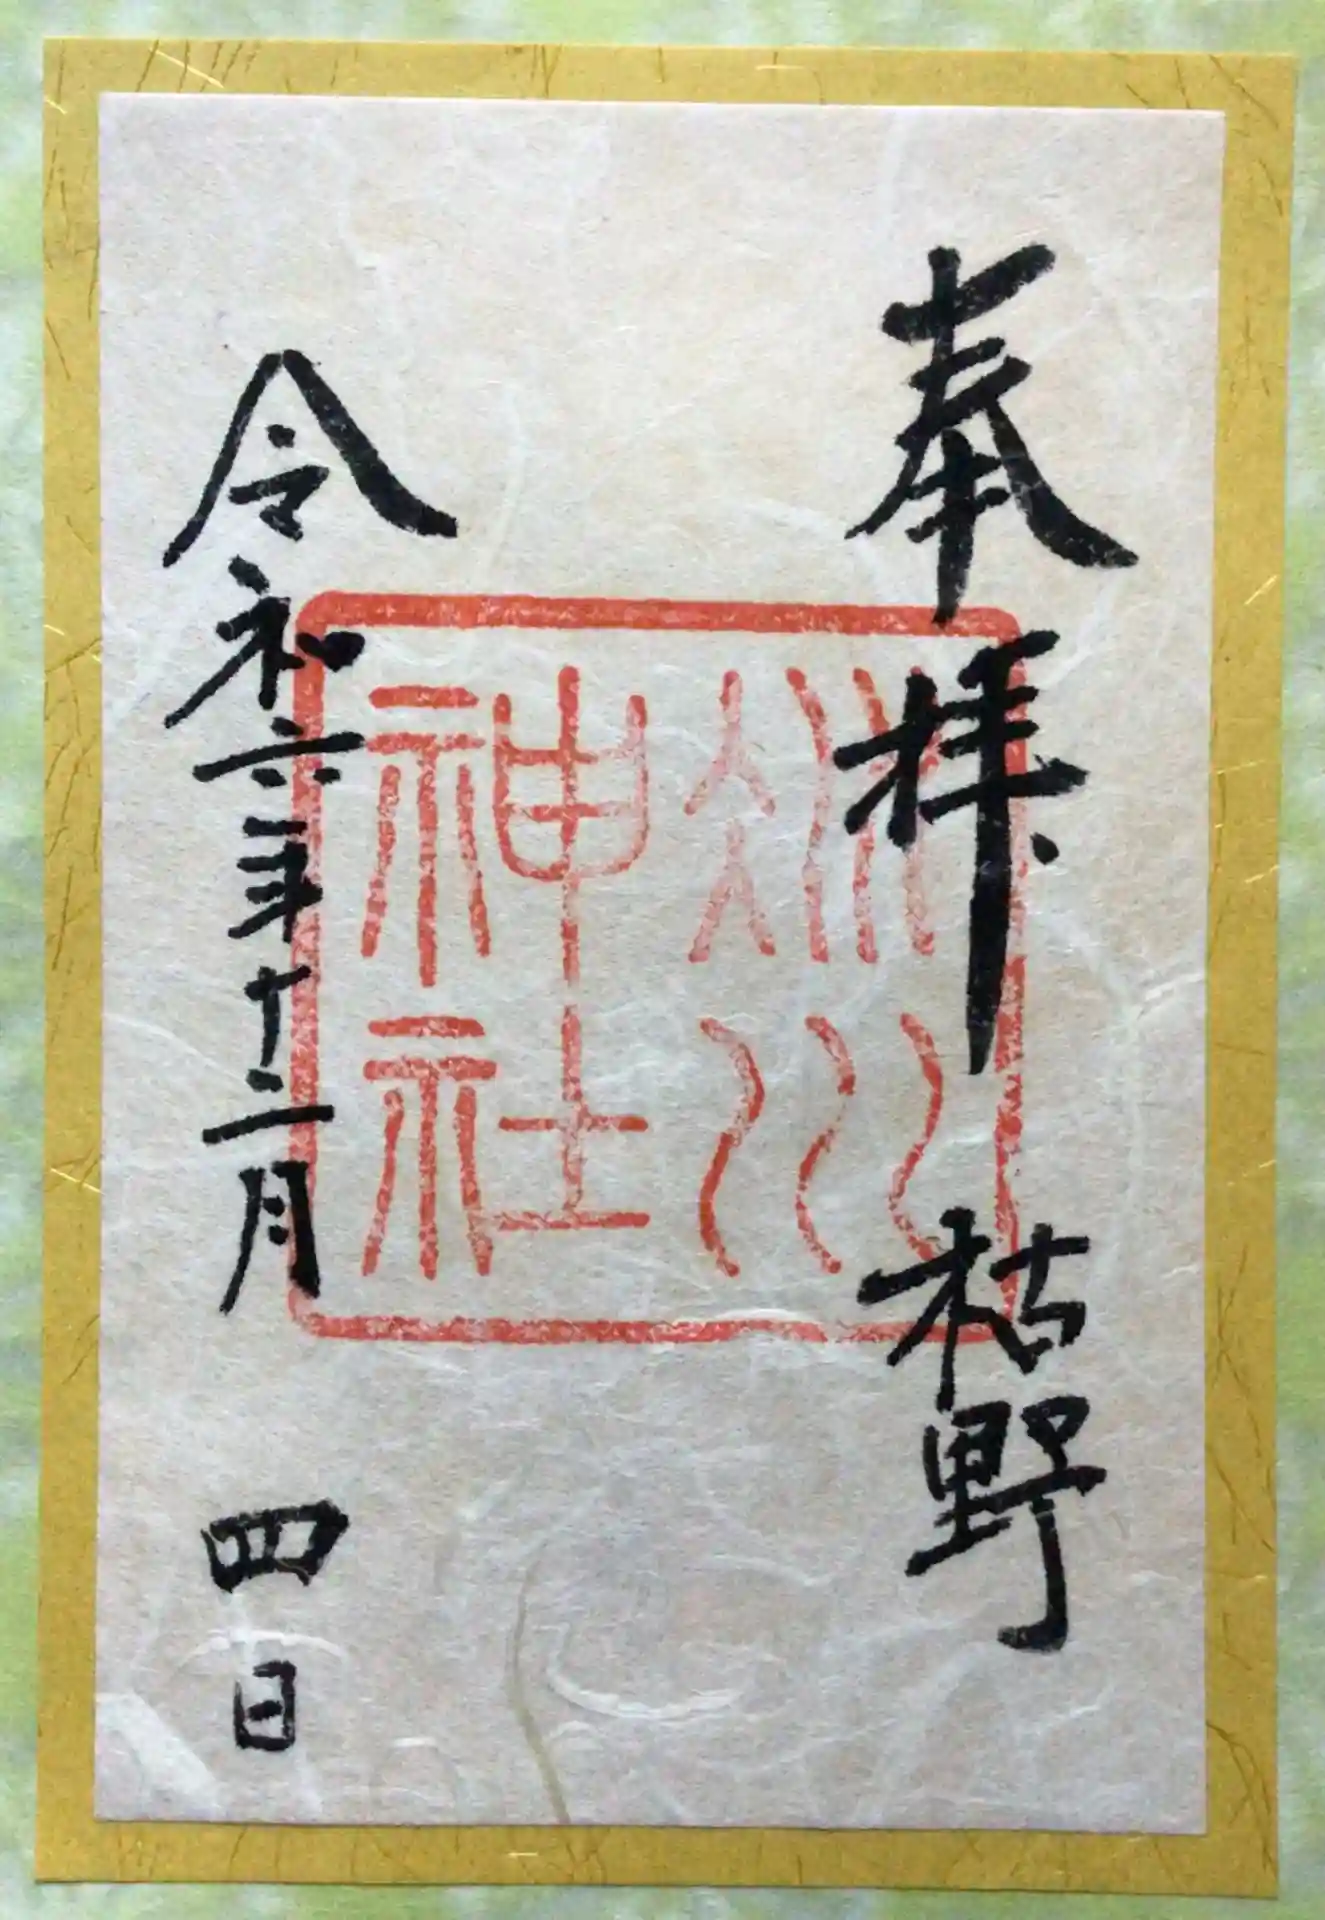 奉拝 枯野
冰川
神社
令和六年十二月 四日